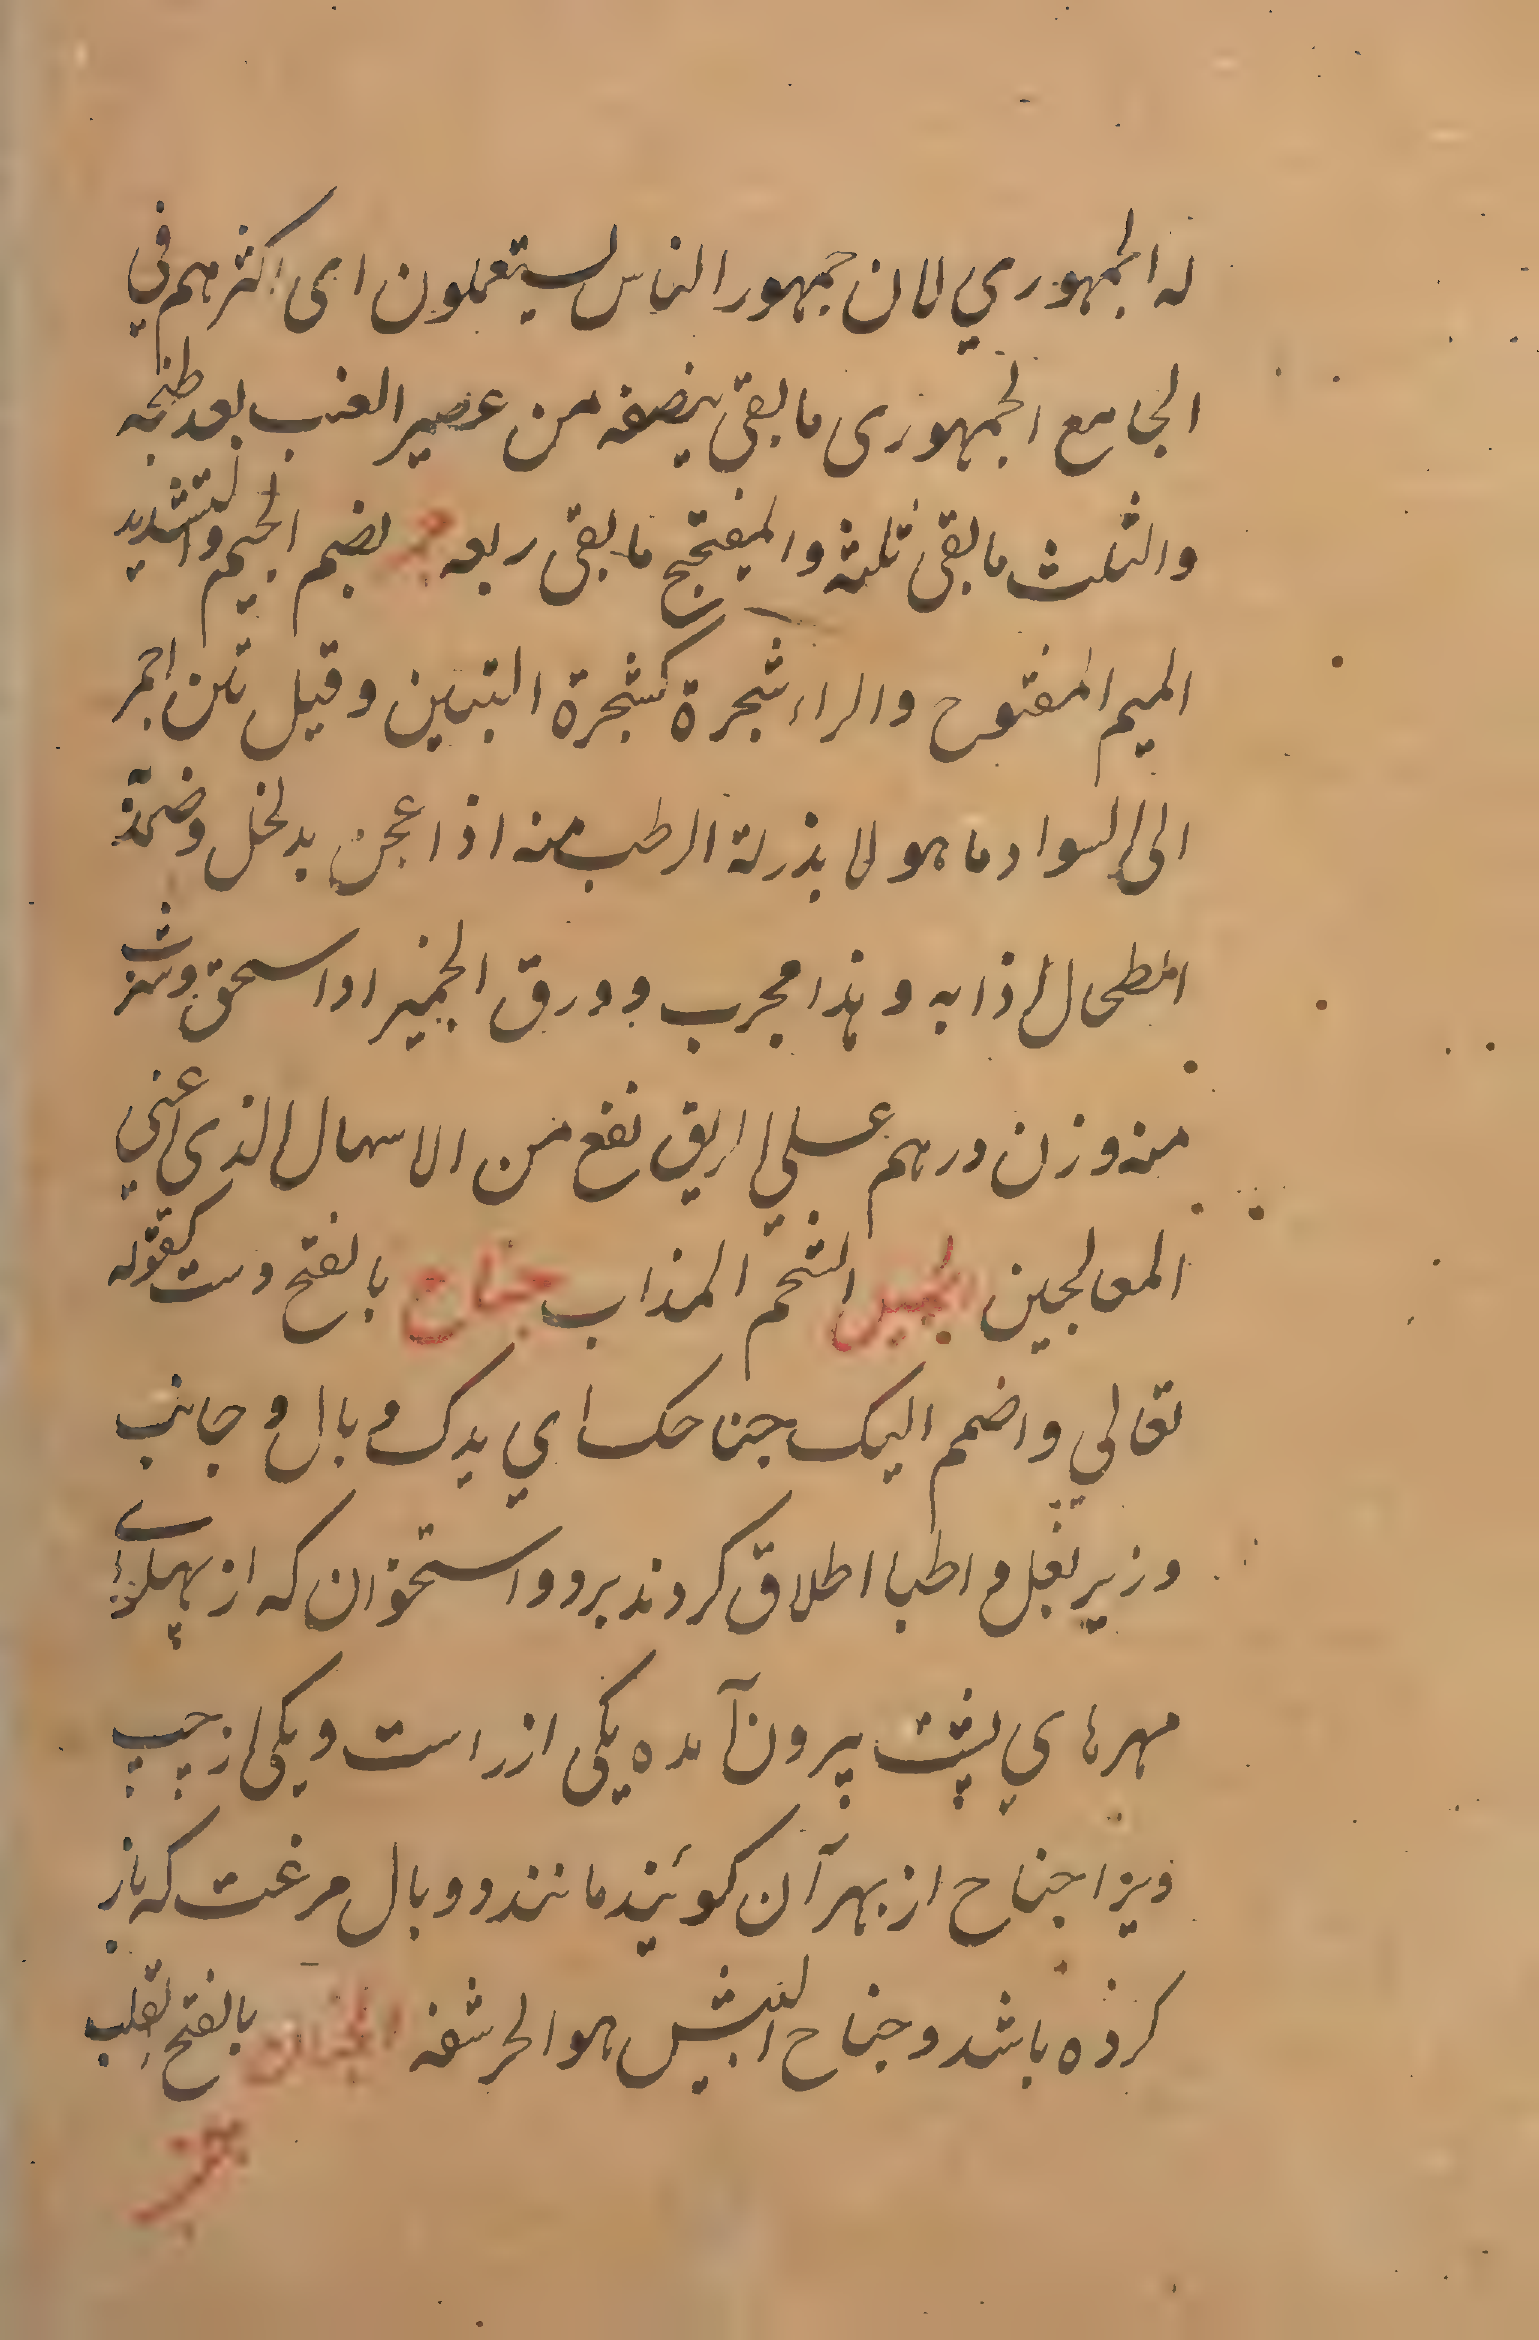 له الجمهوري لان جمهور الناس يستعملون اى اكثرهم في
الجامع الجمهورى ما بقى نصفه من عصير العنب بعد طبخه
والثلث ما بقى ثلثه والميفتحج ما بقى ربعه بضم الجيم والتشديد
الميم المفتوح والراء شجرة كشجرة التين وقيل تين احمر
الى السواد ما هو لا بذر له الرطب منه اذا عجن بدلخل وضمد
الطحال اذابه وهذا مجرب وورق الجميز اذا سحق وشرب
منه وزن درهم على الريق نفع من الاسهال الذى اعني
المعالجين الجميل الشحم المذاب جناح بالفتح دست كقوله
تعالي واضمم اليك جناحك اي يدك و بال و جانب
و زير بغل و اطبا اطلاق كردند بر دو استخوان كه از پهلوے
مهرهاي پشت بيرون آمده يكى از راست و يكى از چپ
ويرا جناح از بهر آن كويند مانند دو بال مرغست كه باز
كرده باشد و جناح هو الحرشفه الجنان بالفتح لقلب